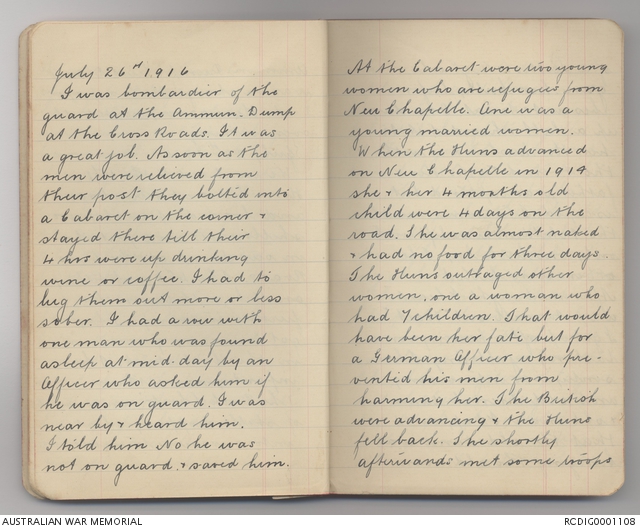 July 26th 1916
I was bombardier of the
guard at the Ammun. Dump
at the Cross Roads. It was
a great job. As soon as the
men were relieved from
their post they bolted into
a Cabaret on the corner &
stayed there till their
4 hrs were up drinking
wine or coffee. I had to
lug them out more or less
sober. I had a row with
one man who was found
asleep at mid-day by an
Officer who asked him if
he was on guard. I was
near by & heard him.
I told him No he was
not on guard & saved him.
At the Cabaret were two young
women who are refugees from
Neu Chapelle. One was a
young married women.
When the Huns advanced
on Neu Chapelle in 1914
she & her 4 months old
child were 4 days on the
road. She was almost naked
& had no food for three days.
The Huns outraged other
women, one a woman who
had 7 children. That would
have been her fate but for
a German Officer who pre-
vented his men from
harming her. The British
were advancing & the Huns
fell back. She shortly
afterwards met some troops
AUSTRALIAN WAR MEMORIAL
RCDIG0001108